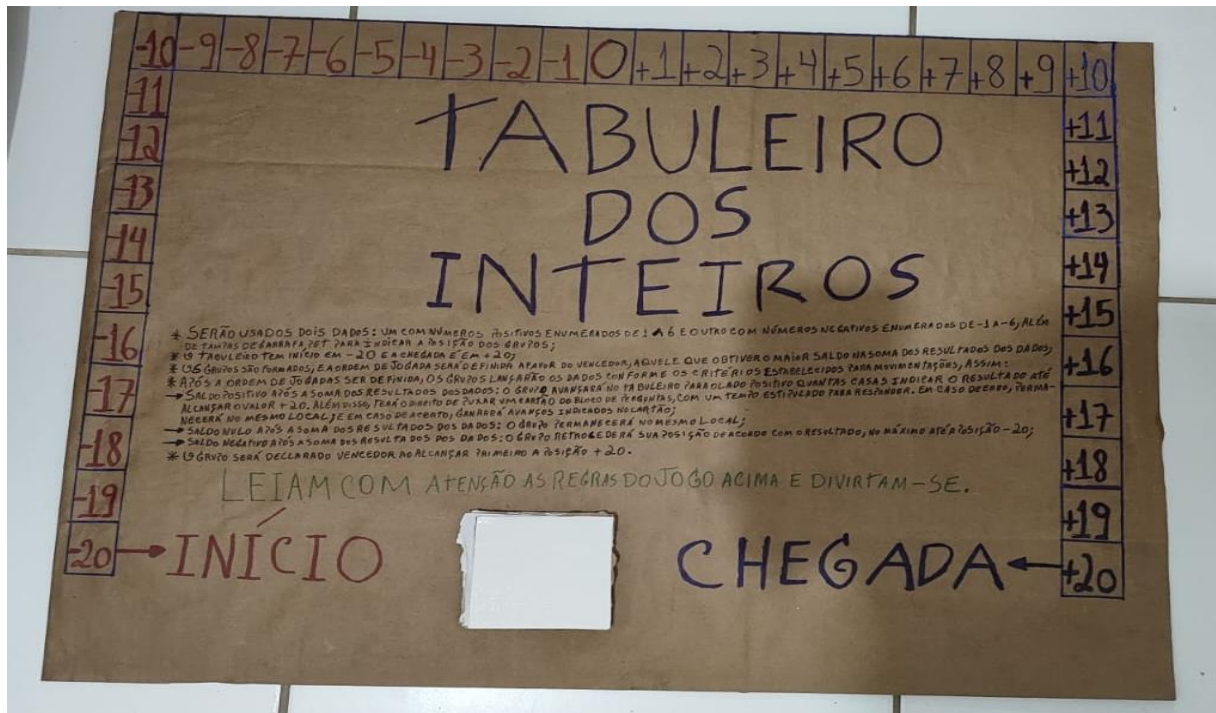 -10 -9 -8 -7 -6 -5 -4 -3 -2 -1 0 +1 +2 +3 +4 +5 +6 +7 +8 +9 +10
-11
-12
-13
-14
-15
-16
-17
-18
-19
-20
TABULEIRO
DOS
INTEIROS
* SERÃO USADOS DOIS DADOS: UM COM NÚMEROS POSITIVOS ENUMERADOS DE 1 A 6 E OUTRO COM NÚMEROS NEGATIVOS ENUMERADOS DE -1 A -6, ALÉM
DE TAMPAS DE GARRAFA PET PARA INDICAR A POSIÇÃO DOS GRUPOS;
* O TABULEIRO TEM INÍCIO EM -20 E A CHEGADA É EM +20;
* OS GRUPOS SÃO FORMADOS, E A ORDEM DE JOGADA SERÁ DEFINIDA A FAVOR DO VENCEDOR, AQUELE QUE OBTIVER O MAIOR SALDO NA SOMA DOS RESULTADOS DOS DADOS;
* APÓS A ORDEM DE JOGADAS SER DEFINIDA, OS GRUPOS LANÇARÃO OS DADOS CONFORME OS CRITÉRIOS ESTABELECIDOS PARA MOVIMENTAÇÕES, ASSIM:
→ SALDO POSITIVO APÓS A SOMA DOS RESULTADOS DOS DADOS: O GRUPO AVANÇARÁ NO TABULEIRO PARA O LADO POSITIVO QUANTAS CASAS INDICAR O RESULTADO ATÉ
ALCANÇAR O VALOR +20. ALÉM DISSO, TERÁ O DIREITO DE PUXAR UM CARTÃO DO BLOCO DE PERGUNTAS, COM UM TEMPO ESTIPULADO PARA RESPONDER. EM CASO DE ERRO, PERMA-
NECERÁ NO MESMO LOCAL; E EM CASO DE ACERTO, GANHARÁ AVANÇOS INDICADOS NO CARTÃO;
→ SALDO NULO APÓS A SOMA DOS RESULTADOS DOS DADOS: O GRUPO PERMANECERÁ NO MESMO LOCAL;
→ SALDO NEGATIVO APÓS A SOMA DOS RESULTADOS DOS DADOS: O GRUPO RETROCEDERÁ SUA POSIÇÃO DE ACORDO COM O RESULTADO, NO MÁXIMO ATÉ A POSIÇÃO -20;
* O GRUPO SERÁ DECLARADO VENCEDOR AO ALCANÇAR PRIMEIRO A POSIÇÃO +20.
LEIAM COM ATENÇÃO AS REGRAS DO JOGO ACIMA E DIVIRTAM-SE.
→ INÍCIO
CHEGADA ←
+11
+12
+13
+14
+15
+16
+17
+18
+19
+20